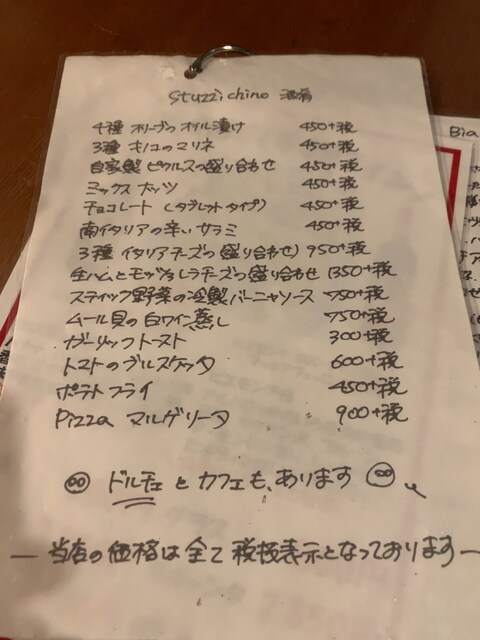 Stuzzichino 酒肴
4種 オリーブのオイル漬け 450+税
3種 キノコのマリネ 450+税
自家製 ピクルスの盛り合わせ 450+税
ミックス ナッツ 450+税
チョコレート (タブレットタイプ) 450+税
南イタリアの辛いサラミ 450+税
3種 イタリアチーズの盛り合わせ) 950+税
生ハムとモッツァレラチーズの盛り合わせ 1350+税
スティック野菜の冷製バーニャソース 750+税
ムール貝の白ワイン蒸し 750+税
ガーリックトースト 300+税
トマトのブルスケッタ 600+税
ポテトフライ 450+税
Pizza マルゲリータ 900+税
ドルチェ と カフェも、あります
― 当店の価格は全て 税抜表示となっております ―
Bia